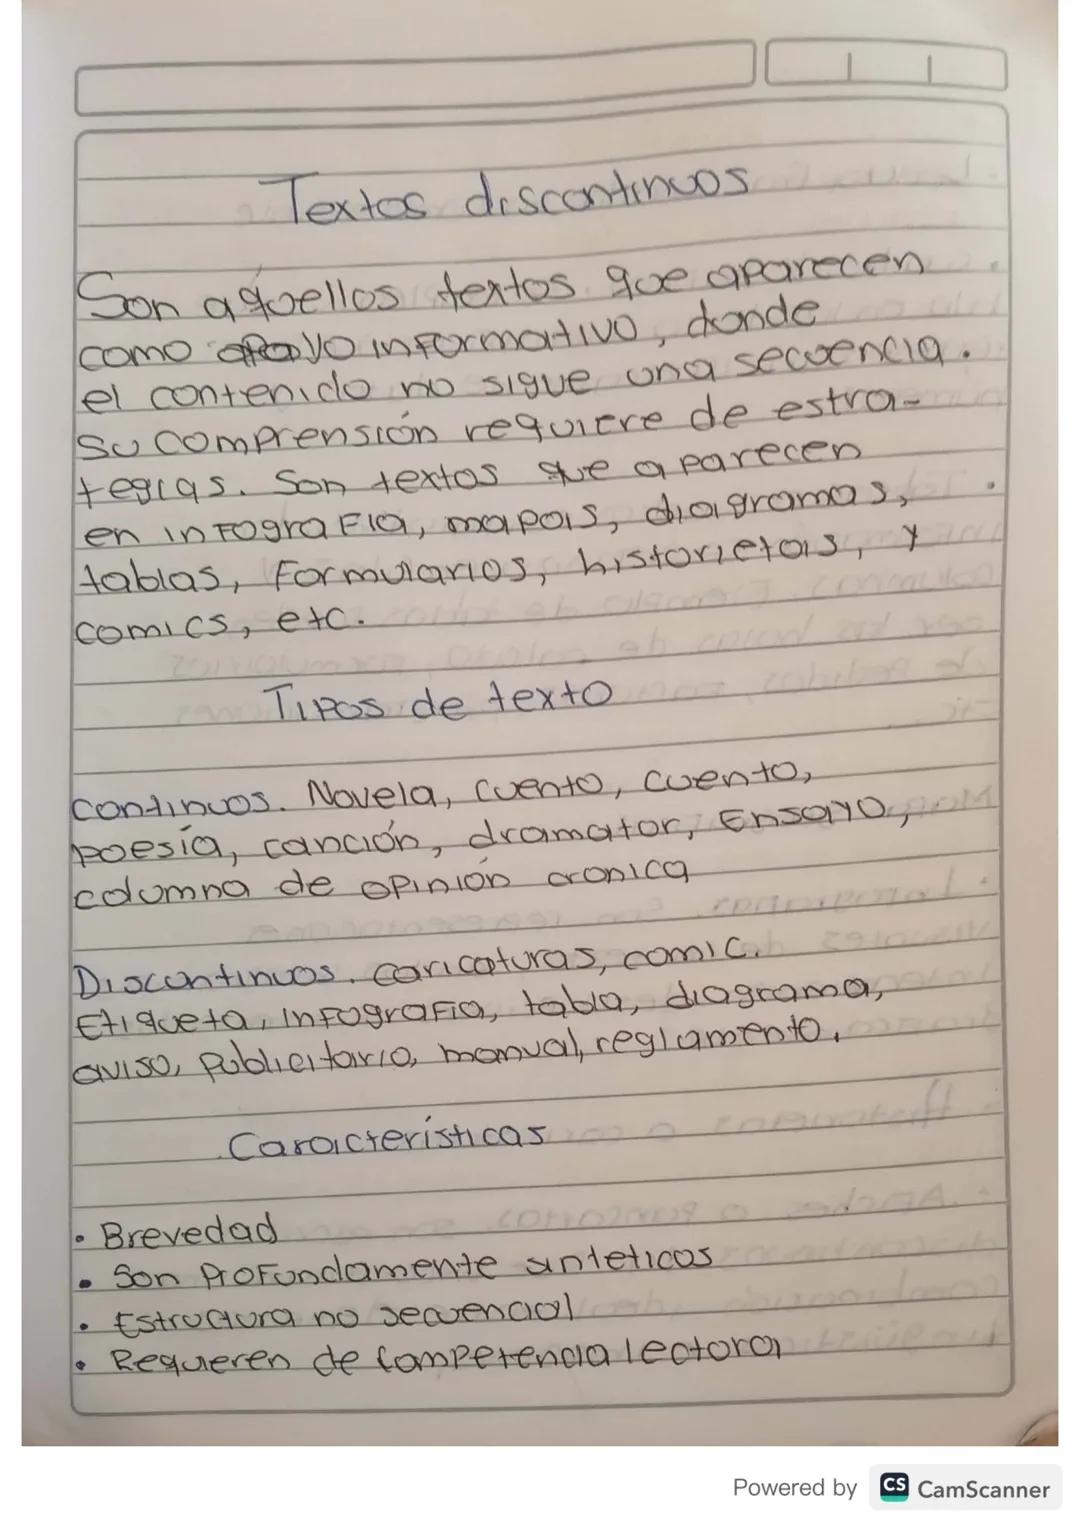 Textos discontinuos
Son aquellos textos que aparecen
como apoyo informativo, donde
el contenido no sigue una secuencia.
Su comprensión requiere de estra-
tegias. Son textos que aparecen
en infografia, mapas, diagramas,
tablas, formularios, historietas, y
comics, etc.
Tipos de texto
continuos. Novela, cuento, cuento,
poesía, canción, dramator, Ensayo,
columna de opinión cronica
Discontinuos. caricaturas, comic.
Etiqueta, infografia, tabla, diagrama,
aviso, publicitario, manual, reglamento.
Características
• Brevedad
• Son profundamente sinteticos
• Estructura no secuencial
• Requieren de competencia lectora
Powered by CS CamScanner